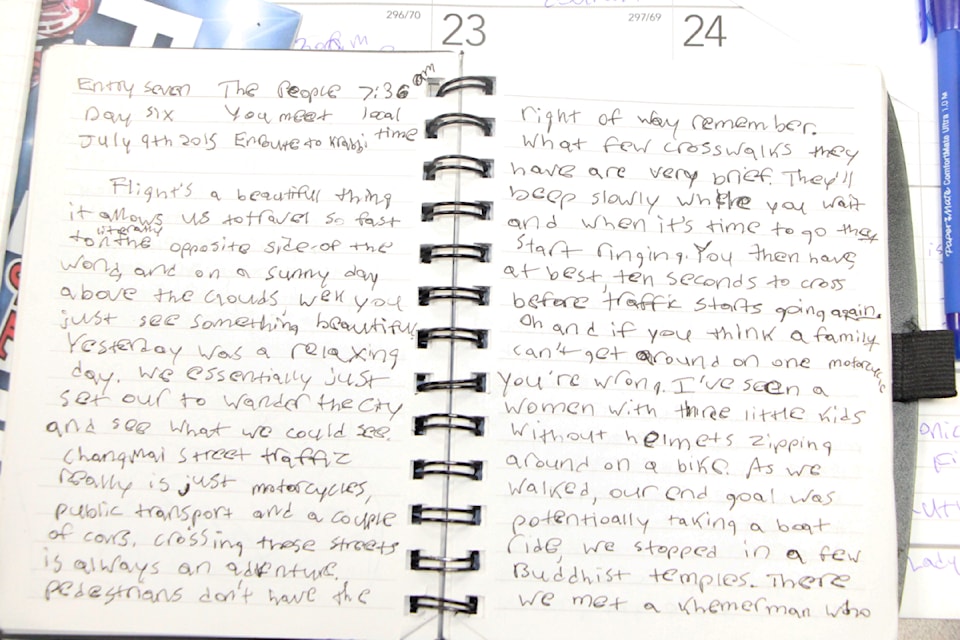 296/70 23
297/69 24
Entry seven The People 7:36 am
Day six You meet local
July 9th 2015 Enroute to Krabi time
Flight's a beautiful thing
it allows us to travel so fast
literally
to the opposite side of the
world, and on a sunny day
above the clouds, well you
just see something beautiful.
Yesterday was a relaxing
day. We essentially just
set our to wander the city
and see what we could see.
Changmai street traffic
really is just motorcycles,
public transport and a couple
of cars. Crossing these streets
is always an adventure.
pedestrians don't have the
right of way remember.
What few crosswalks they
have are very brief. They'll
beep slowly while you wait
and when it's time to go they
start ringing. You then have,
at best, ten seconds to cross
before traffic starts going again.
Oh and if you think a family
can't get around on one motorcycle
you're wrong. I've seen a
women with three little kids
without helmets zipping
around on a bike. As we
walked, our end goal was
potentially taking a boat
ride, we stopped in a few
Buddhist temples. There
we met a Khemerman who
PAPER MATE ComfortMate Ultra 1.0 M